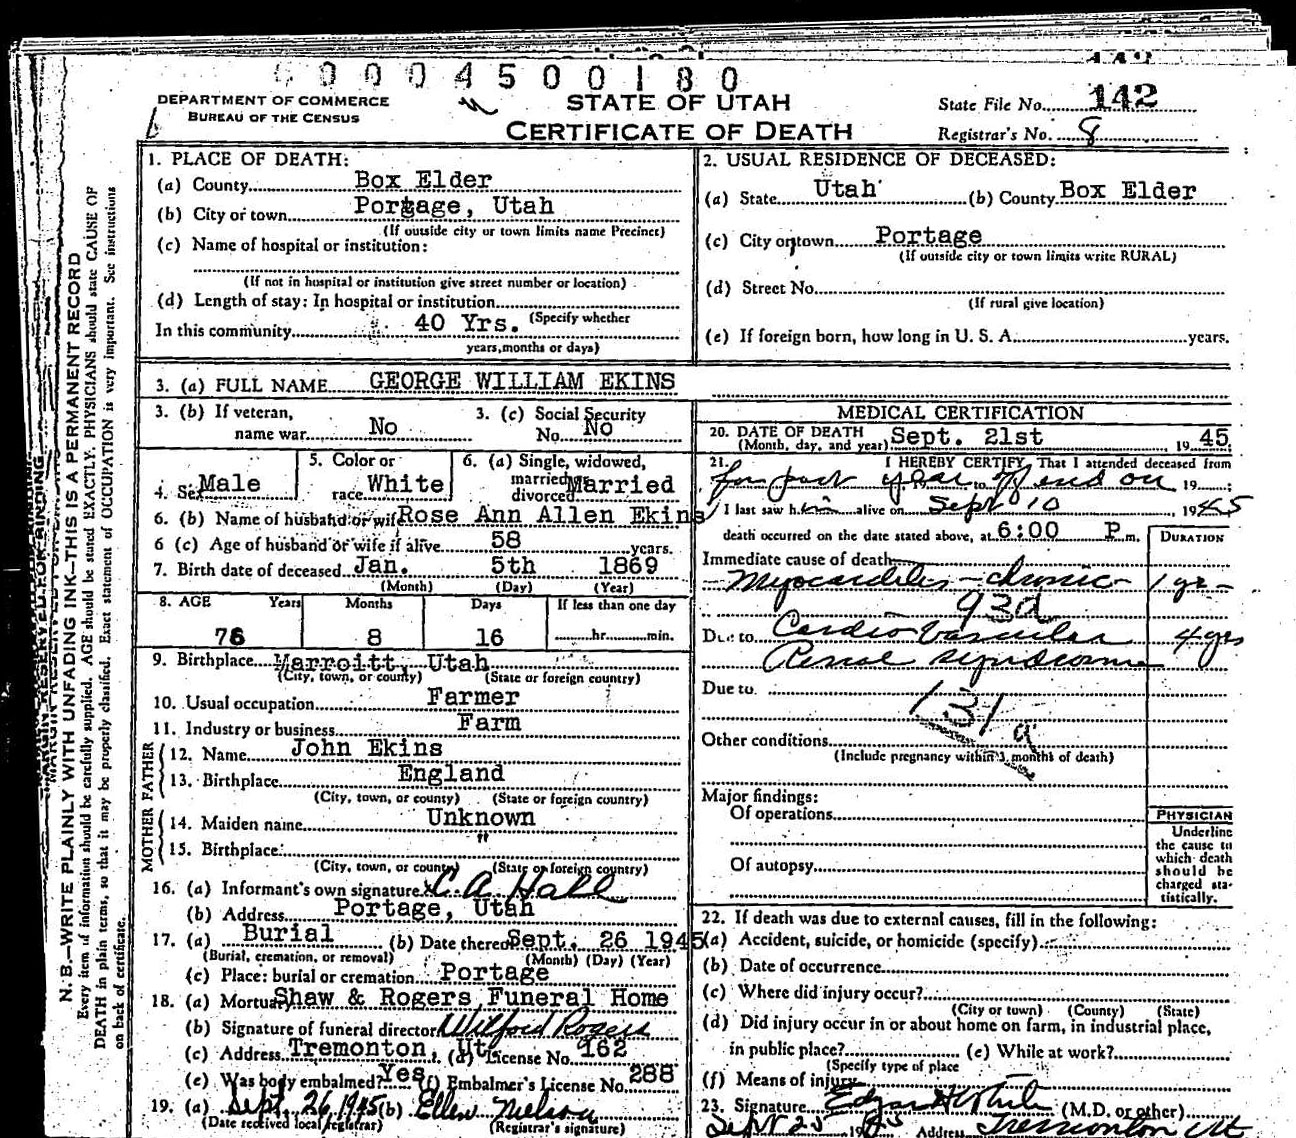 00004500180
142
DEPARTMENT OF COMMERCE
BUREAU OF THE CENSUS
STATE OF UTAH
CERTIFICATE OF DEATH
State File No. 142
Registrar's No. 8
1. PLACE OF DEATH:
(a) County Box Elder
(b) City or town Portage, Utah
(If outside city or town limits name Precinct)
(c) Name of hospital or institution:
(If not in hospital or institution give street number or location)
(d) Length of stay: In hospital or institution
(Specify whether
In this community 40 Yrs.
years, months or days)
2. USUAL RESIDENCE OF DECEASED:
(a) State Utah (b) County Box Elder
(c) City or town Portage
(If outside city or town limits write RURAL)
(d) Street No.
(If rural give location)
(e) If foreign born, how long in U. S. A. years.
3. (a) FULL NAME GEORGE WILLIAM EKINS
3. (b) If veteran,
name war No
3. (c) Social Security
No. No
4. Sex Male
5. Color or
race White
6. (a) Single, widowed,
married
divorced Married
6. (b) Name of husband or wife Rose Ann Allen Ekins
6 (c) Age of husband or wife if alive 58 years.
7. Birth date of deceased Jan. 5th 1869
(Month) (Day) (Year)
8. AGE Years Months Days If less than one day
76 8 16 hr. min.
9. Birthplace Marroitt, Utah
(City, town, or county) (State or foreign country)
10. Usual occupation Farmer
11. Industry or business Farm
FATHER
12. Name John Ekins
13. Birthplace England
(City, town, or county) (State or foreign country)
MOTHER
14. Maiden name Unknown
15. Birthplace: "
(City, town, or county) (State or foreign country)
16. (a) Informant's own signature C. A. Hall
(b) Address Portage, Utah
17. (a) Burial (b) Date thereof Sept. 26 1945
(Burial, cremation, or removal) (Month) (Day) (Year)
(c) Place: burial or cremation Portage
18. (a) Mortuary Shaw & Rogers Funeral Home
(b) Signature of funeral director Wilford Rogers
(c) Address Tremonton, Ut. (d) License No. 162
(e) Was body embalmed? Yes (f) Embalmer's License No. 288
19. (a) Sept. 26, 1945 (b) Ellen Nielson
(Date received local registrar) (Registrar's signature)
MEDICAL CERTIFICATION
20. DATE OF DEATH
(Month, day, and year) Sept. 21st 19 45
21. I HEREBY CERTIFY, That I attended deceased from
for past year to end on 19
I last saw him alive on Sept 10, 1945
death occurred on the date stated above, at 6:00 P m.
DURATION
Immediate cause of death
Myocarditis - chronic 1 yr
93d
Due to Cardio Vascular 4 yrs
Renal syndrome
Due to
131a
Other conditions
(Include pregnancy within 3 months of death)
Major findings:
Of operations
Of autopsy
PHYSICIAN
Underline
the cause to
which death
should be
charged sta-
tistically.
22. If death was due to external causes, fill in the following:
(a) Accident, suicide, or homicide (specify)
(b) Date of occurrence
(c) Where did injury occur?
(City or town) (County) (State)
(d) Did injury occur in or about home on farm, in industrial place,
in public place? (e) While at work?
(Specify type of place
(f) Means of injury
23. Signature Edgar H White (M.D. or other)
Sept 25 1945 Address Tremonton Ut
N. B.—WRITE PLAINLY WITH UNFADING INK—THIS IS A PERMANENT RECORD
Every item of information should be carefully supplied. AGE should be stated EXACTLY. PHYSICIANS should state CAUSE OF
DEATH in plain terms, so that it may be properly classified. Exact statement of OCCUPATION is very important. See instructions
on back of certificate.
MARGIN RESERVED FOR BINDING